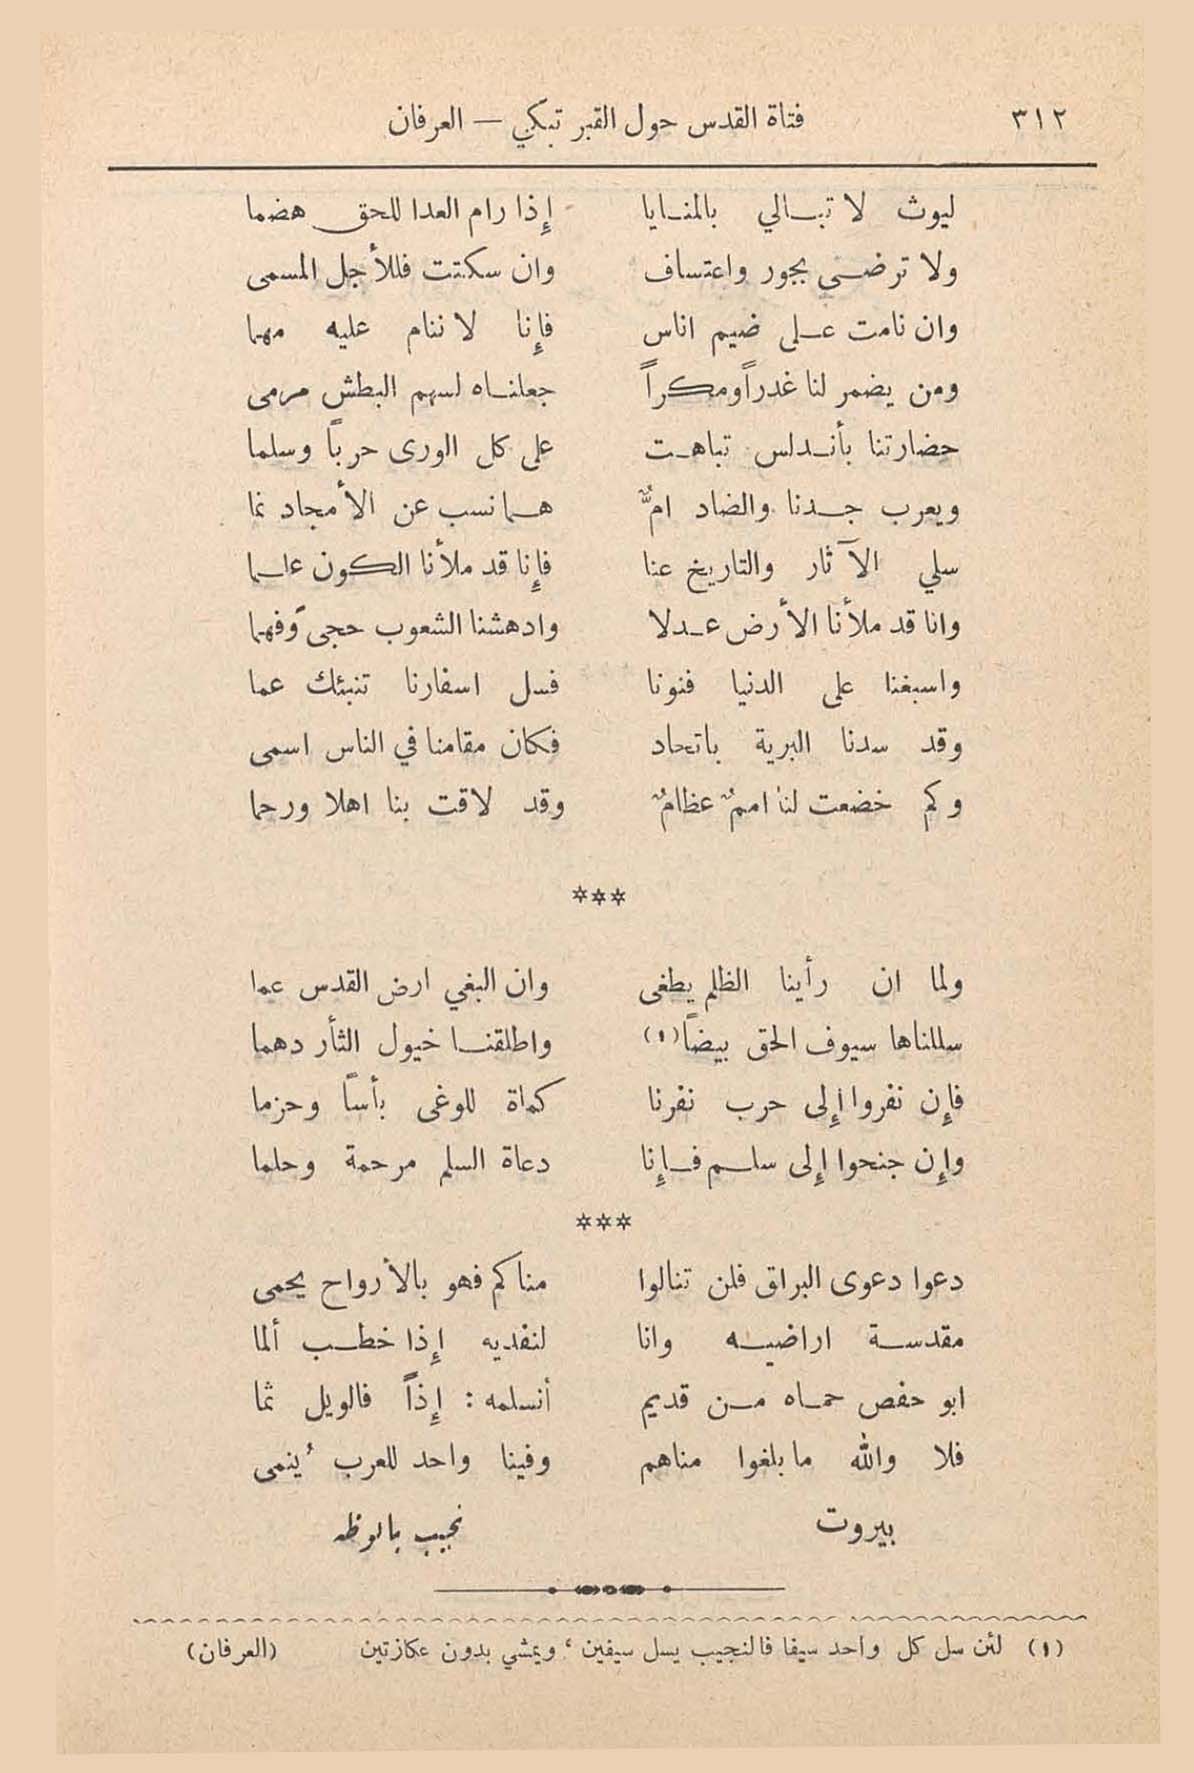 ٣١٢
فتاة القدس حول القبر تبكي — العرفان
ليوث لا تبـالي بالمنـايا إذا رام العدا للحق هضما
ولا ترضـى بجور واعتساف وان سكتت فللأجل المسمى
وان نامت عـلى ضيم اناس فإنا لا ننام عليه مهما
ومن يضمر لنا غدراً ومكراً جعلنـاه لسهم البطش مرمى
حضارتنا بأنـدلس تباهـت على كل الورى حرباً وسلما
ويعرب جـدنا والضاد امٌّ همـا نسب عن الأمجاد نما
سلي الآثار والتاريخ عنا فإنا قد ملأنا الكون علـما
وانا قد ملأنا الأرض عـدلا وادهشنا الشعوب حجىً وفهما
واسبغنا على الدنيا فنونا فسل اسفارنا تنبئك عما
وقد سدنا البرية باتحاد فكان مقامنا في الناس اسمى
وكم خضعت لنا اممٌ عظامٌ وقد لاقت بنا اهلا ورحما
***
ولما ان رأينا الظلم يطغى وان البغي ارض القدس عما
سللناها سيوف الحق بيضاً (١) واطلقنـا خيول الثأر دهما
فإن نفروا إلى حرب نفرنا كماة للوغى بأساً وحزما
وإن جنحوا إلى سلـم فـإنا دعاة السلم مرحمة وحلما
***
دعوا دعوى البراق فلن تنالوا مناكم فهو بالأرواح يحمى
مقدسـة اراضيـه وانا لنفديه إذا خطـب ألما
ابو حفص حمـاه مـن قديم أنسلمه : إذاً فالويل ثما
فلا والله ما بلغوا مناهم وفينا واحد للعرب يُنمى
بيروت نجيب بالوظه
(١) لئن سل كل واحد سيفا فالنجيب يسل سيفين ، ويمشي بدون عكازتين (العرفان)